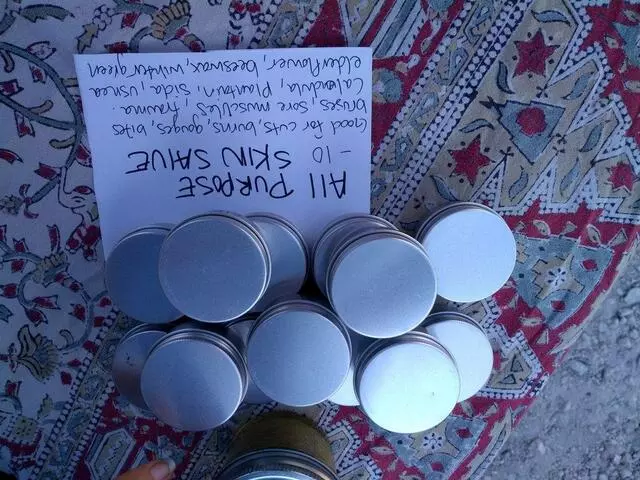 All PURPOSE
SKIN SALVE
-10
Good for cuts, burns, gouges, bites
bruises, sore muscles, trauma.
Calendula, Plantain, Sida, Usnea
elderflower, beeswax, wintergreen